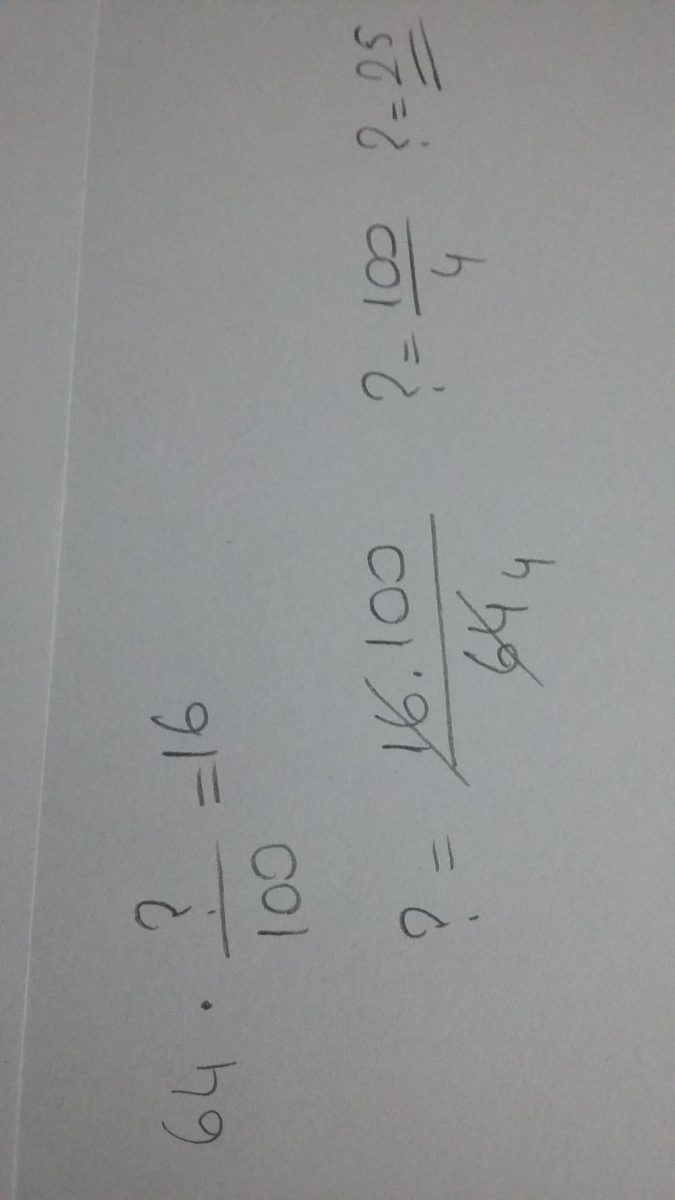 64 · ?/100 = 16
? = 16.100/64 4 ? = 100/4 ? = 25